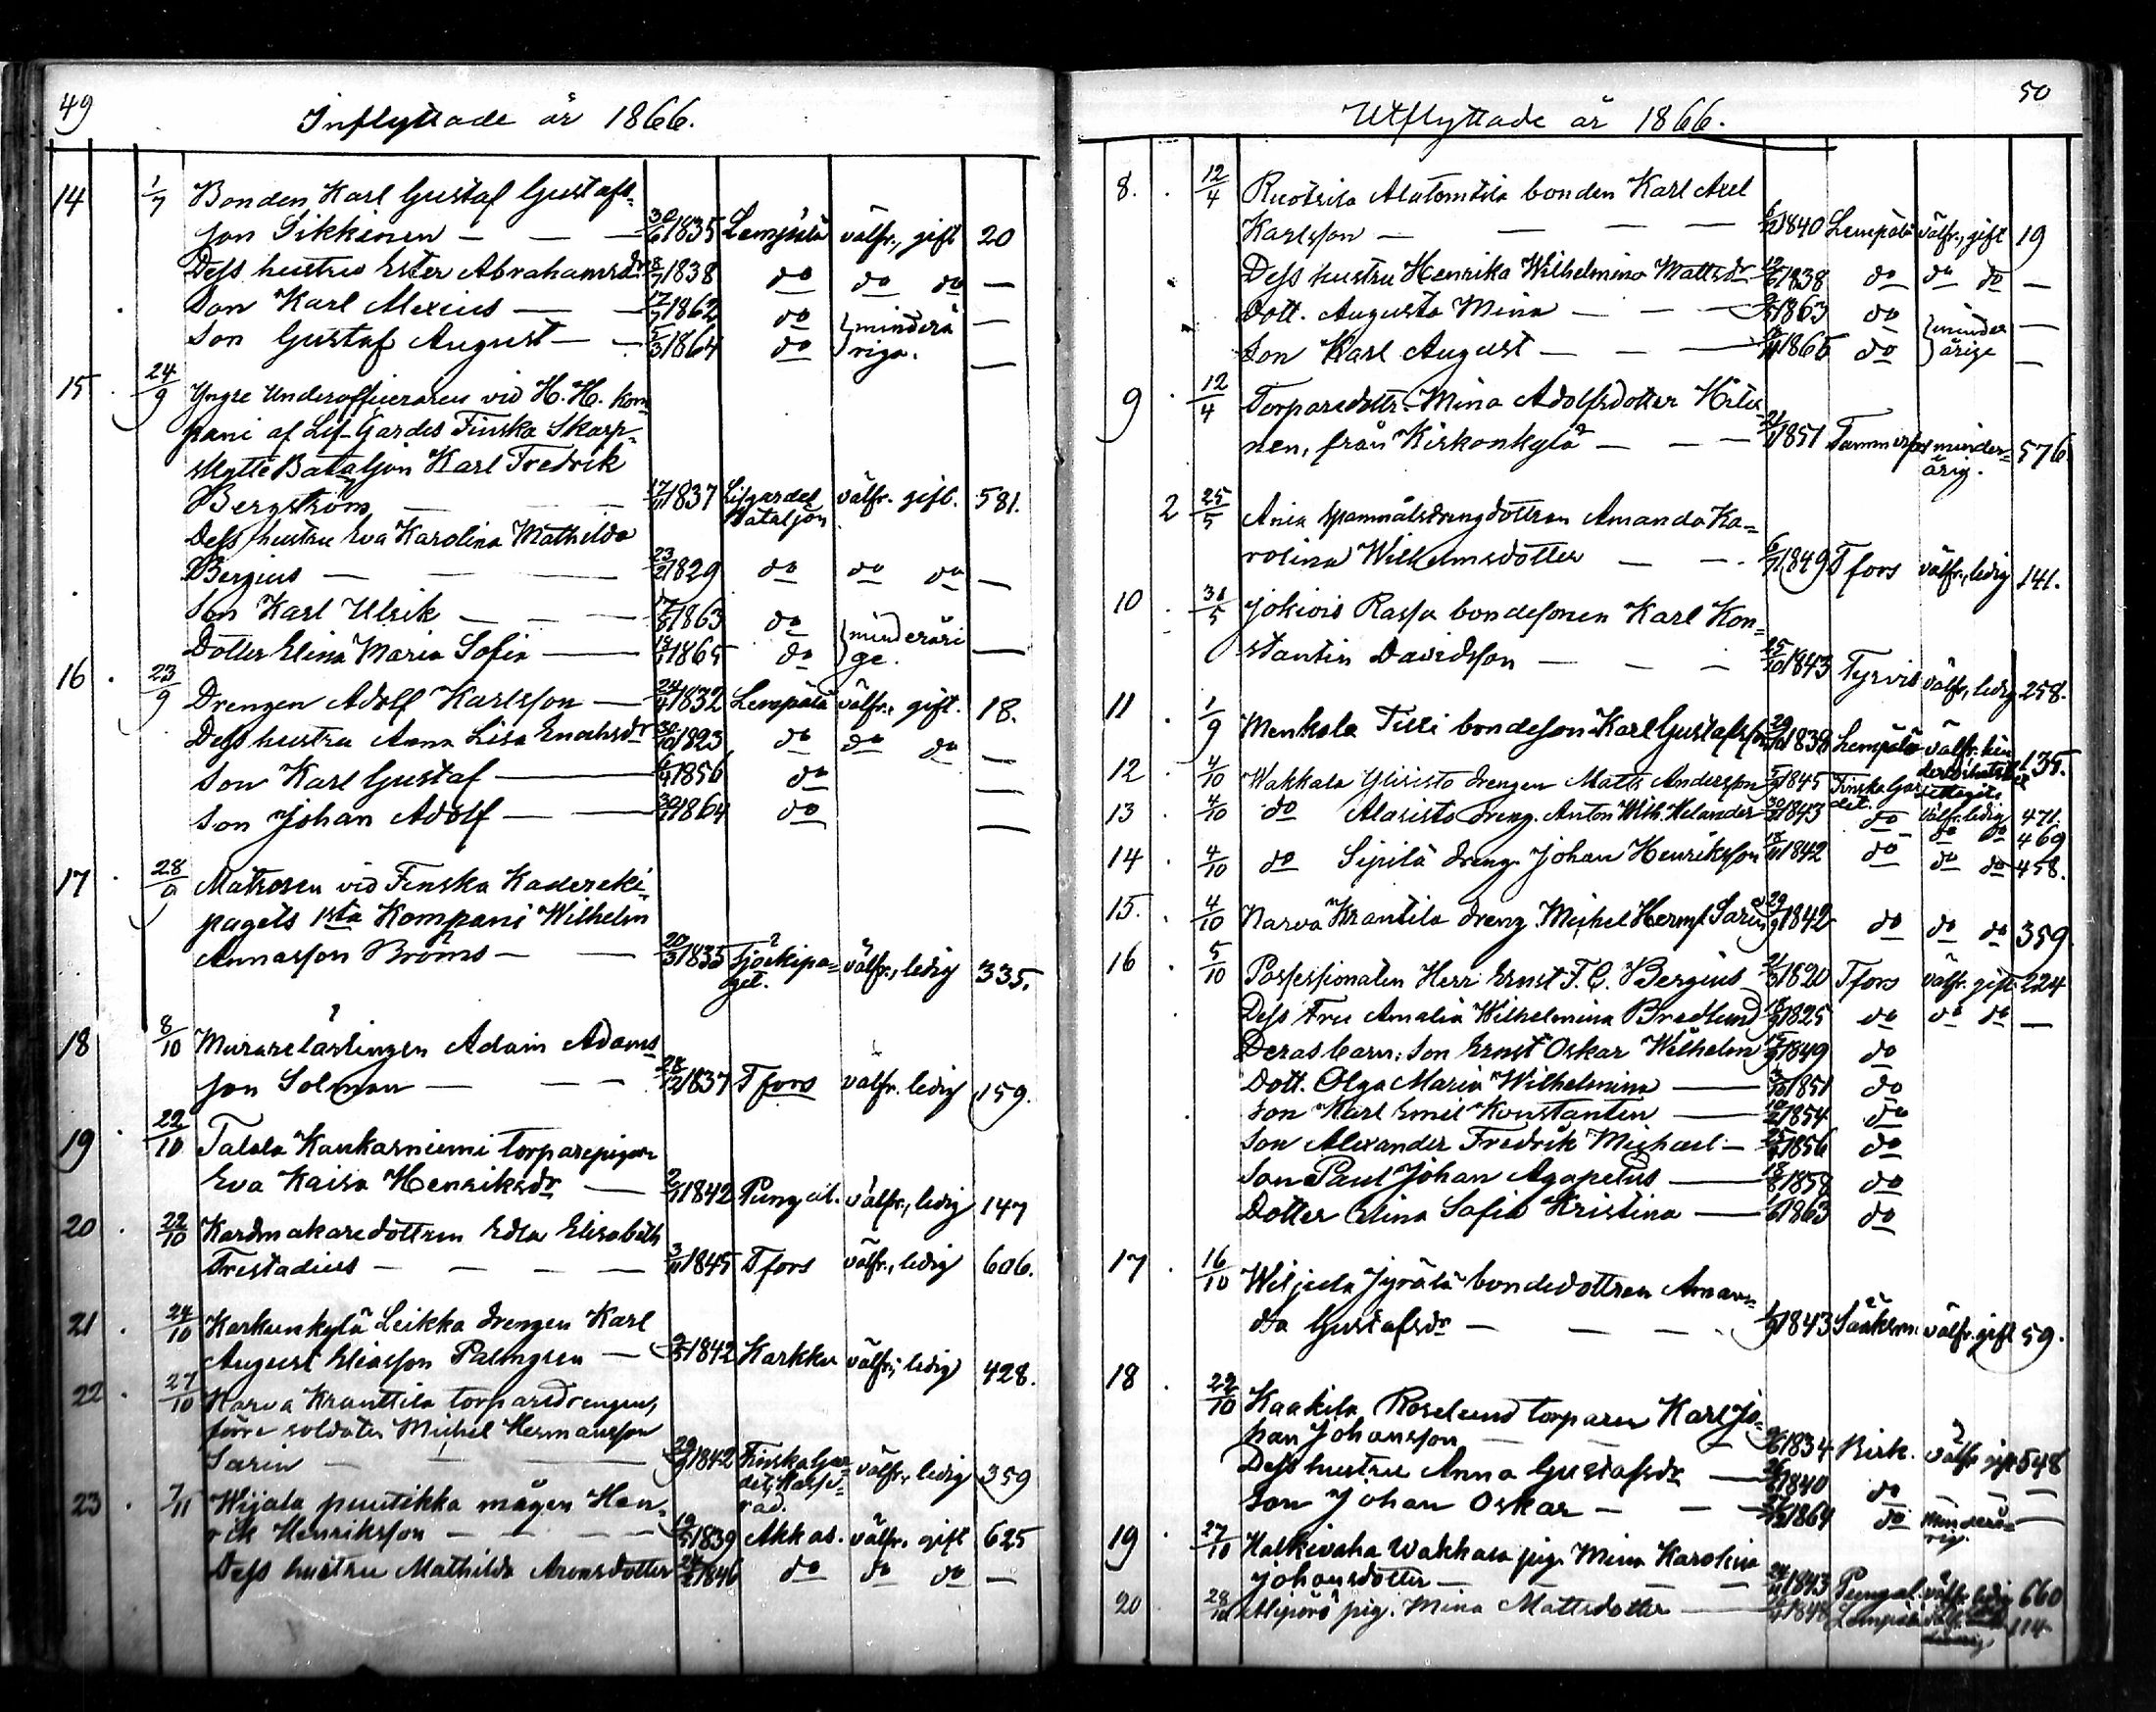 49
Inflyttade år 1866.
14 1/7 Bonden Karl Gustaf Gustafs-
son Sikkinen — — — 30/6 1835 Lempäla välfr., gift 20
Dess hustru Ester Abrahamsdr 8/7 1838 do do do —
Son Karl Alexius — — 17/7 1862 do } minderå —
Son Gustaf August — — 5/3 1864 do } riga. —
15 24/9 Yngre Underofficeraren vid H. H. kom-
pani af Lif-Gardes Finska Skarp-
skytte Bataljon Karl Fredrik
Bergström — — 17/11 1837 Lifgardes välfr. gift. 581.
Bataljon
Dess hustru Eva Karolina Mathilda
Bergius — — — 23/2 1829 do do do —
Son Karl Ulrik — — — 1863 do } minderåri —
Dotter Elina Maria Sofia — 1865 do } ge. —
16 23/9 Drengen Adolf Karlsson — 24/4 1832 Lempälä välfr. gift. 18.
Dess hustru Anna Lisa Enochsdr 30/10 1823 do do do —
Son Karl Gustaf — 1856 do —
Son Johan Adolf — — 1864 do —
17 28/9 Matrosen vid Finska Kadereki-
pagets 1sta Kompani Wilhelm
Annasson Broms — — 20/3 1835 Sjöekipa- välfr., ledig 335.
get.
18 8/10 Murarelärlingen Adam Adams-
son Solman — — — 28/12 1837 Tfors välfr. ledig 159.
19 22/10 Talala Kaukarniemi torparepigan
Eva Kaisa Henriksdr — 1842 Pungal. välfr., ledig 147
20 22/10 Kardmakaredottren Edla Elisabeth
Frestadius — — — — 3/11 1845 Tfors välfr., ledig 606.
21 24/10 Korkeenkylä Leikka drengen Karl
August Eliasson Palmgren — 1842 Karkku välfr., ledig 428.
22 27/10 Narva Kranttila torparedrengen,
förre soldaten Michel Hermansson
Sarin — — — 29/9 1842 Finska Gar- välfr., ledig 359
det,
23 7/11 Wijala puutikka mågen Hen-
rik Henriksson — — — 19/5 1839 Akkas. välfr. gift 625
Dess hustru Mathilda Aronsdotter 1846 do do do —
50
Utflyttade år 1866.
8. 12/4 Ruotsila Alatomtila bonden Karl Axel
Karlsson — — — — 1840 Lempälä välfr., gift 19
Dess hustru Henrika Wilhelmina Mattsdr 1838 do do do —
Dott. Augusta Mina — — — 1863 do } minder —
Son Karl August — — — 1865 do } årige —
9 12/4 Torparedottr. Mina Adolfsdotter Hili-
nen, från Kirkonkylä — — — 1851 Tammerfors minder- 576
årig.
2 25/5 Ania spannmålsdrengdottren Amanda Ka-
rolina Wilhelmsdotter — — 1849 Tfors välfr., ledig 141.
10 31/5 Jokiois Rassa bondesonen Karl Kon-
stantin Davidsson — — — 25/10 1843 Tyrvis välfr., ledig 258.
11 1/9 Menkala Tilli bondeson Karl Gustafsson 1838 Lempälä välfr. 135.
12 4/10 Wakkala Ylisisto drengen Matts Andersson 1845 Finska Gar
det. välfr. ledig 471.
13 4/10 do Alasisto dreng. Anton Wilh. Helander 1843 do do do 469
14 4/10 do Sipilä dreng. Johan Henriksson 1842 do do do 458.
15. 4/10 Narva Krantila dreng Michel Hermss. Sarin 29/9 1842 do do do 359.
16 5/10 Possessionaten Herr Ernst F. C. Bergius 1820 Tfors välfr. gift 224
Dess Fru Amalia Wilhelmina Bredlund 1825 do do do —
Deras barn: Son Ernst Oskar Wilhelm 1849 do
Dott. Olga Maria Wilhelmina — 1851 do
Son Karl Emil Konstantin — 1854 do
Son Alexander Fredrik Michael — 1856 do
Son Paul Johan Agapetus — 1858 do
Dotter Elina Sofia Kristina — 1863 do
17 16/10 Wiljula Jyrälä bondedottren Aman-
da Gustafsdr — — — 1843 Sääksm. välfr. gift 59.
18 22/10 Kaakila Roselund torparen Karl Jo-
han Johansson — — — 1834 Birk. välfr. gift 548
Dess hustru Anna Gustafsdr — 1840 do — — —
Son Johan Oskar — — — 1864 do minderå- —
rig.
19 27/10 Halkivaha Wakkala pig. Mina Karolina
Johansdotter — — 1843 Pungal. välfr. ledig 660
20 28/10 pig. Mina Mattsdotter — 1848 Lempälä 114.